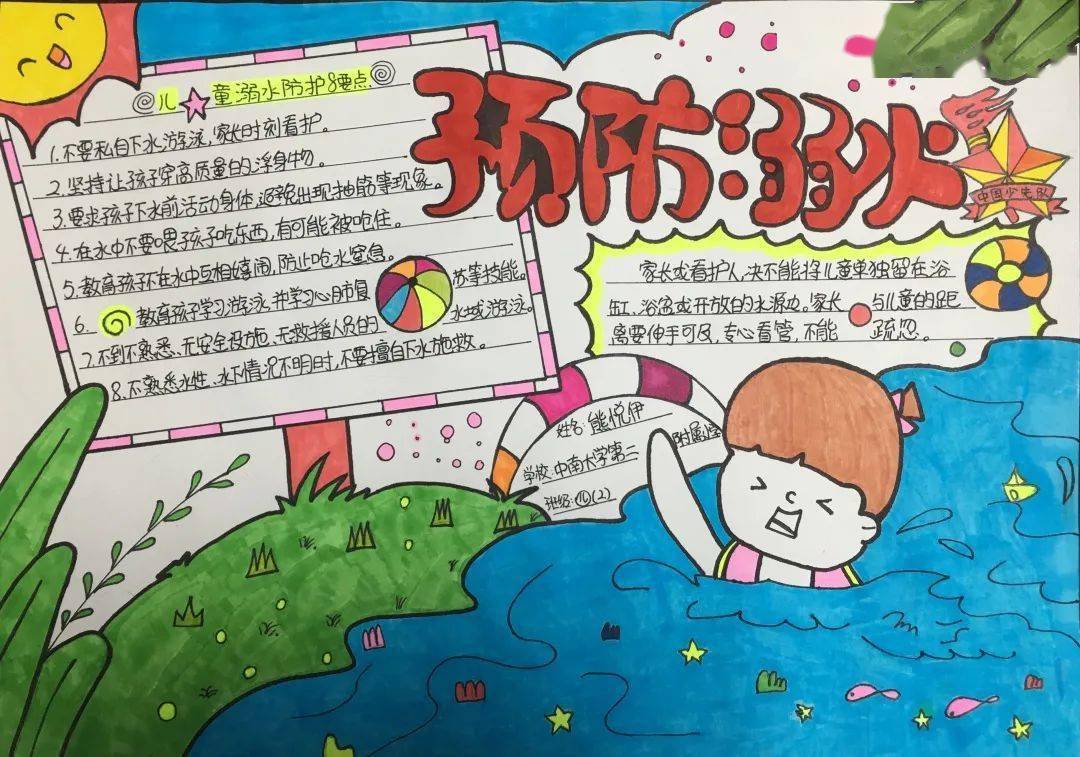 儿童溺水防护8要点
1.不要私自下水游泳,家长时刻看护。
2.坚持让孩子穿高质量的浮身物。
3.要求孩子下水前活动身体,避免出现抽筋等现象。
4.在水中不要喂孩子吃东西,有可能被呛住。
5.教育孩子不在水中互相嬉闹,防止呛水窒息。
6.教育孩子学习游泳并学习心肺复苏等技能。
7.不到不熟悉、无安全设施、无救援人员的水域游泳。
8.不熟悉水性、水下情况不明时,不要擅自下水施救。
预防溺水
中国少先队
家长或看护人,决不能将儿童单独留在浴
缸、浴盆或开放的水源边。家长与儿童的距
离要伸手可及,专心看管,不能疏忽。
姓名:熊悦伊
学校:中南大学第二附属
班级:(2)